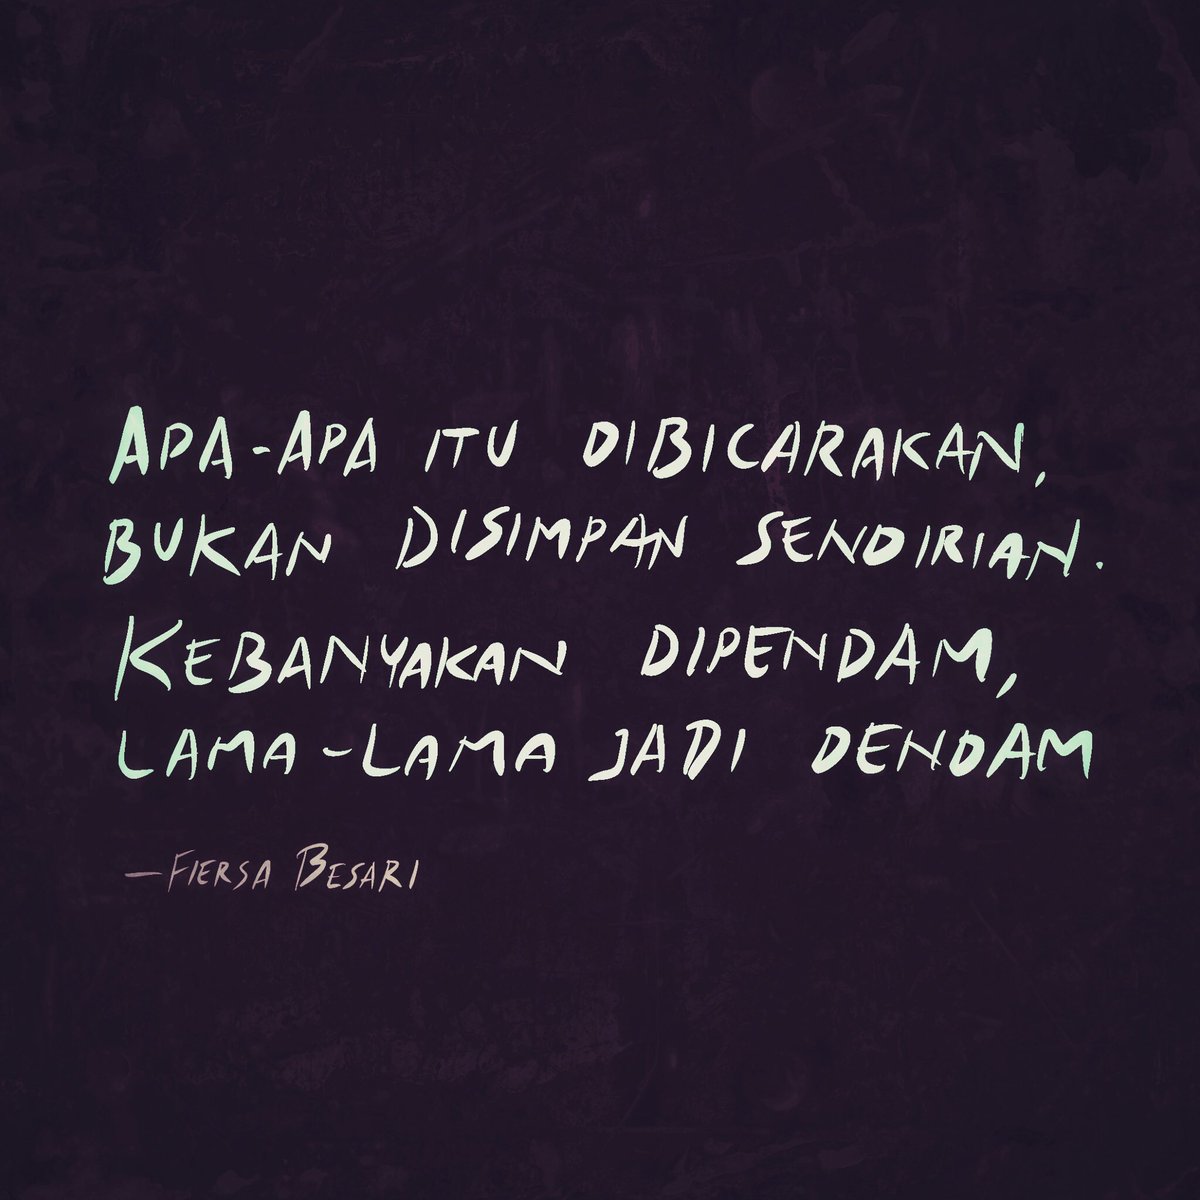 APA-APA ITU DIBICARAKAN,
BUKAN DISIMPAN SENDIRIAN.
KEBANYAKAN DIPENDAM,
LAMA-LAMA JADI DENDAM
—FIERSA BESARI